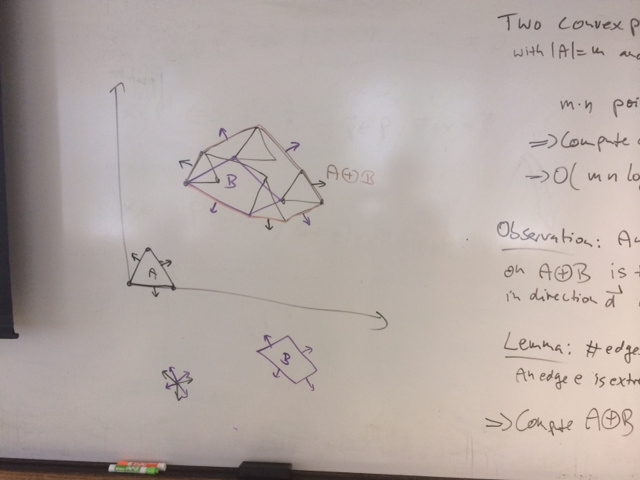 Two convex p
with |A|=m and
m·n poi
⇒ Compute
→ O( mn lo
Observation: An
on A⊕B is
in direction d⃗
Lemma: # edge
An edge e is extr
⇒ Compute A⊕B
B
A⊕B
A
B